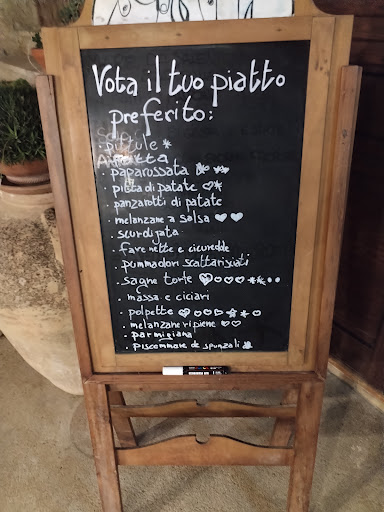 Vota il tuo piatto
preferito:
· pittule *
· paparussata
· pitta di patate ♡*
· panzarotti di patate
· melanzane a salsa ♥♥
· scurdijata
· fave nette e cicuredde
· pummadori scattarisciati
· sagne torte
· massa e ciciari
· polpette
· melanzane ripiene ♡♡
· parmigiana
· piscemmare de spunzali